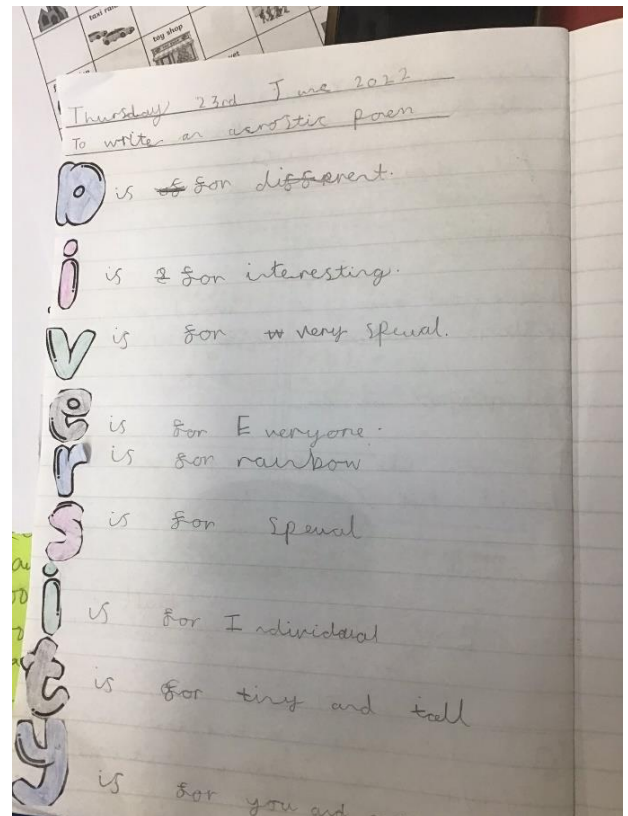 taxi ra
toy shop
Thursday 23rd June 2022
To write an acrostic poem
D is for different.
i is for interesting.
v is for very special.
e is for Everyone.
r is for rainbow
s is for special
i is for Individual
t is for tiny and tall
y is for you and